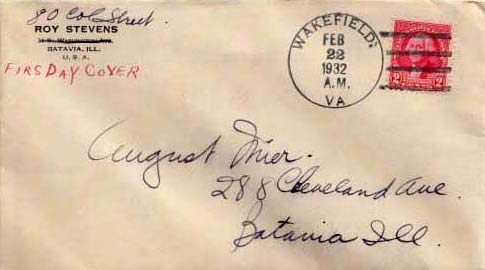 80 Col Street.
ROY STEVENS
BATAVIA, ILL.
U. S. A.
FIRSDAY COVER
WAKEFIELD,
FEB
22
1932
A.M.
VA
2 2
August Mier.
288 Cleveland Ave.
Batavia Ill.